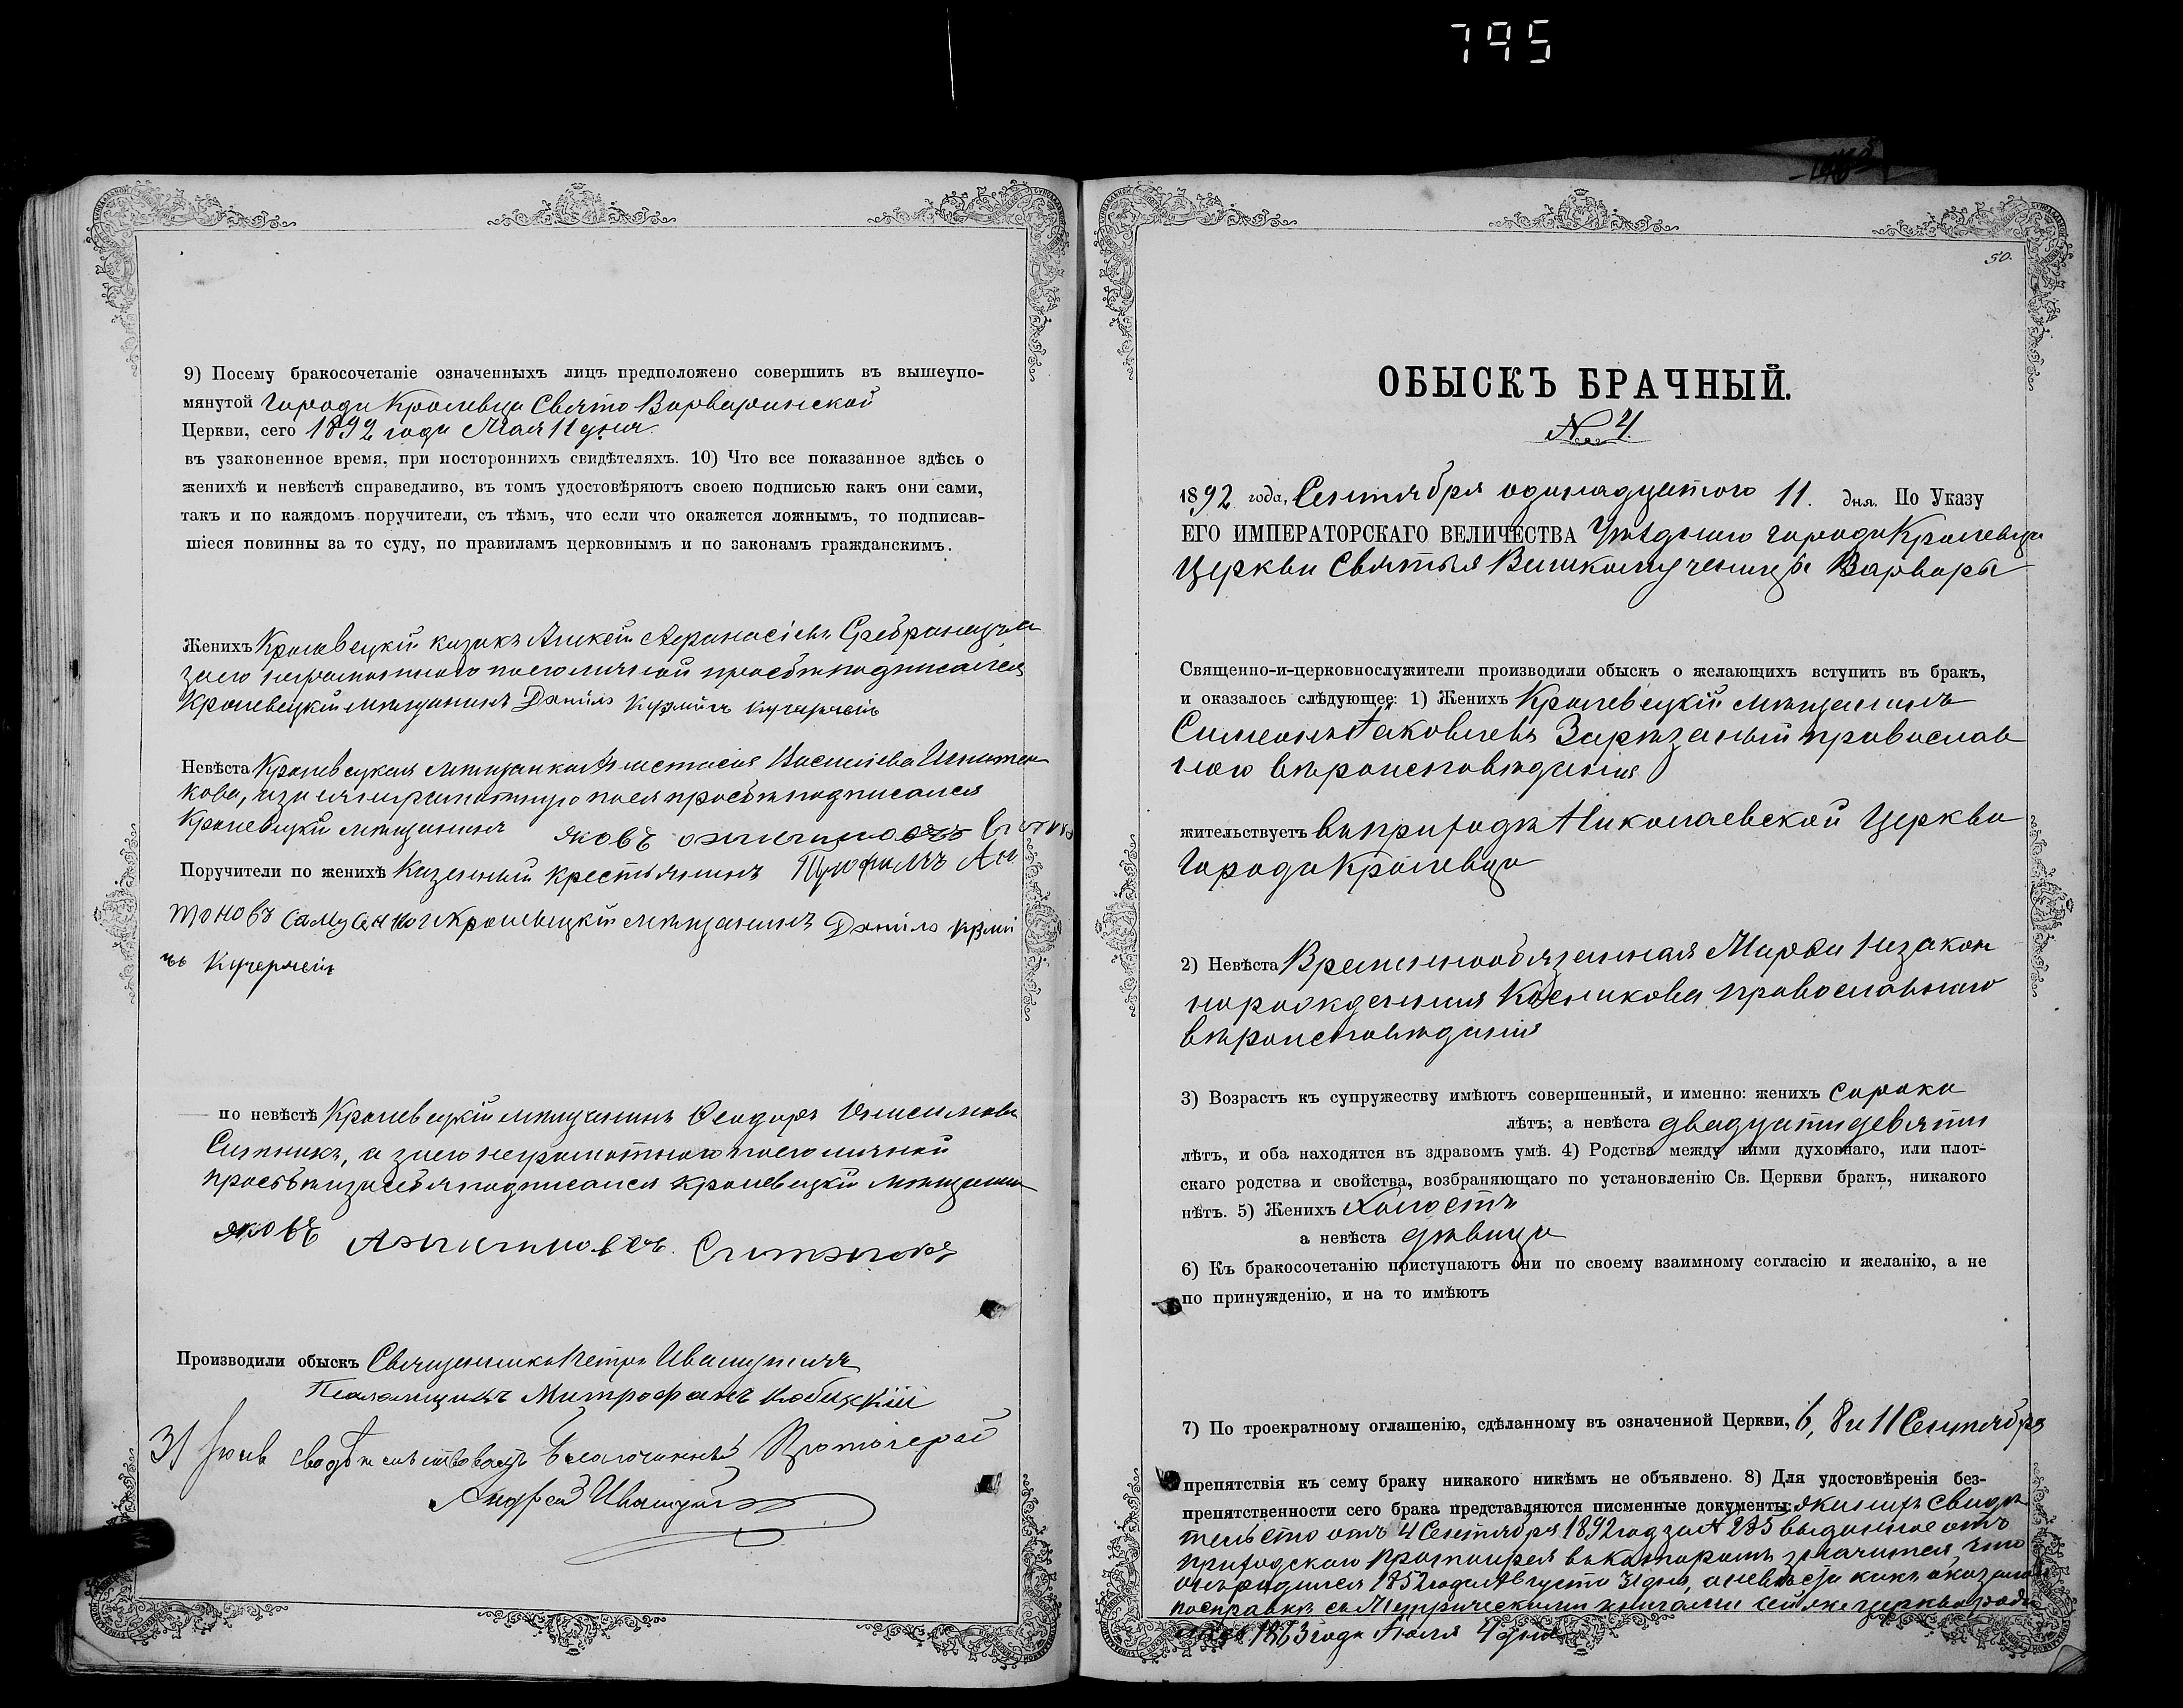 795
9) Посему бракосочетаніе означенныхъ лицъ предположено совершить въ вышеупо-
мянутой города Кролевца Свято Варваринской
Церкви, сего 1892 года Мая 11 дня.
въ узаконенное время, при постороннихъ свидѣтеляхъ. 10) Что все показанное здѣсь о
женихѣ и невѣстѣ справедливо, въ томъ удостовѣряютъ своею подписью какъ они сами,
такъ и по каждомъ поручители, съ тѣмъ, что если что окажется ложнымъ, то подписав-
шіеся повинны за то суду, по правиламъ церковнымъ и по законамъ гражданскимъ.
Женихъ Кролевецкій казакъ Алексѣй Аѳанасіевъ
за его неграмотного по его личной просьбѣ подписался
Кролевецкій мѣщанинъ Даніилъ
Невѣста Кролевецкая мѣщанка Анастасія Васильева
кова, а за ея неграмотную по ея просьбѣ подписался
Кролевецкій мѣщанинъ яковъ
Поручители по женихѣ Казенный крестьянинъ Трофимъ Ан
тоновъ Самусенко и Кролевецкій мѣщанинъ Даніилъ
по невѣстѣ Кролевецкій мѣщанинъ Ѳеодоръ
Ситникъ, а за его неграмотного по его личной
просьбѣ и за себя подписался Кролевецкій мѣщанин
яковъ
Производили обыскъ Священникъ Петръ Иваницкій
Псаломщикъ Митрофанъ
31 Іюля свидѣтельствовалъ Благочинный Протоіерей
Андрей
50.
ОБЫСКЪ БРАЧНЫЙ.
№ 4.
1892 года, Сентября одинадцатого 11. дня. По Указу
ЕГО ИМПЕРАТОРСКАГО ВЕЛИЧЕСТВА Уѣзднаго города Кролевца
Церкви Святыя Великомученицы Варвары
Священно-и-церковнослужители производили обыскъ о желающихъ вступить въ бракъ,
и оказалось слѣдующее: 1) Женихъ Кролевецкій мѣщанинъ
Симеонъ Іаковлевъ Зарѣзаный православ
наго вѣроисповѣданія
жительствуетъ въ приходѣ Николаевской Церкви
Города Кролевца
2) Невѣста Временнообязанная Марѳа незакон
норожденная Косникова православнаго
вѣроисповѣданія
3) Возрастъ къ супружеству имѣютъ совершенный, и именно: женихъ сорока
лѣтъ; а невѣста двадцати девяти
лѣтъ, и оба находятся въ здравомъ умѣ. 4) Родства между ними духовнаго, или плот-
скаго родства и свойства, возбраняющаго по установленію Св. Церкви бракъ, никакого
нѣтъ. 5) Женихъ холостъ
а невѣста дѣвица
6) Къ бракосочетанію приступаютъ они по своему взаимному согласію и желанію, а не
по принужденію, и на то имѣютъ
7) По троекратному оглашенію, сдѣланному въ означенной Церкви, 6, 8 и 11 Сентября
препятствія къ сему браку никакого никѣмъ не объявлено. 8) Для удостовѣренія без-
препятственности сего брака представляются писменные документы: женихъ свидѣ
тельство отъ 4 Сентября 1892 год за № 235 выданное отъ
приходского Протоиерея въ которомъ значится, что
онъ родился 1852 года Августа 31 дня, а невѣста какъ оказалос
по справкѣ съ Метрическими книгами сей же церкви роди
лась 1863 года Іюля 4 дня